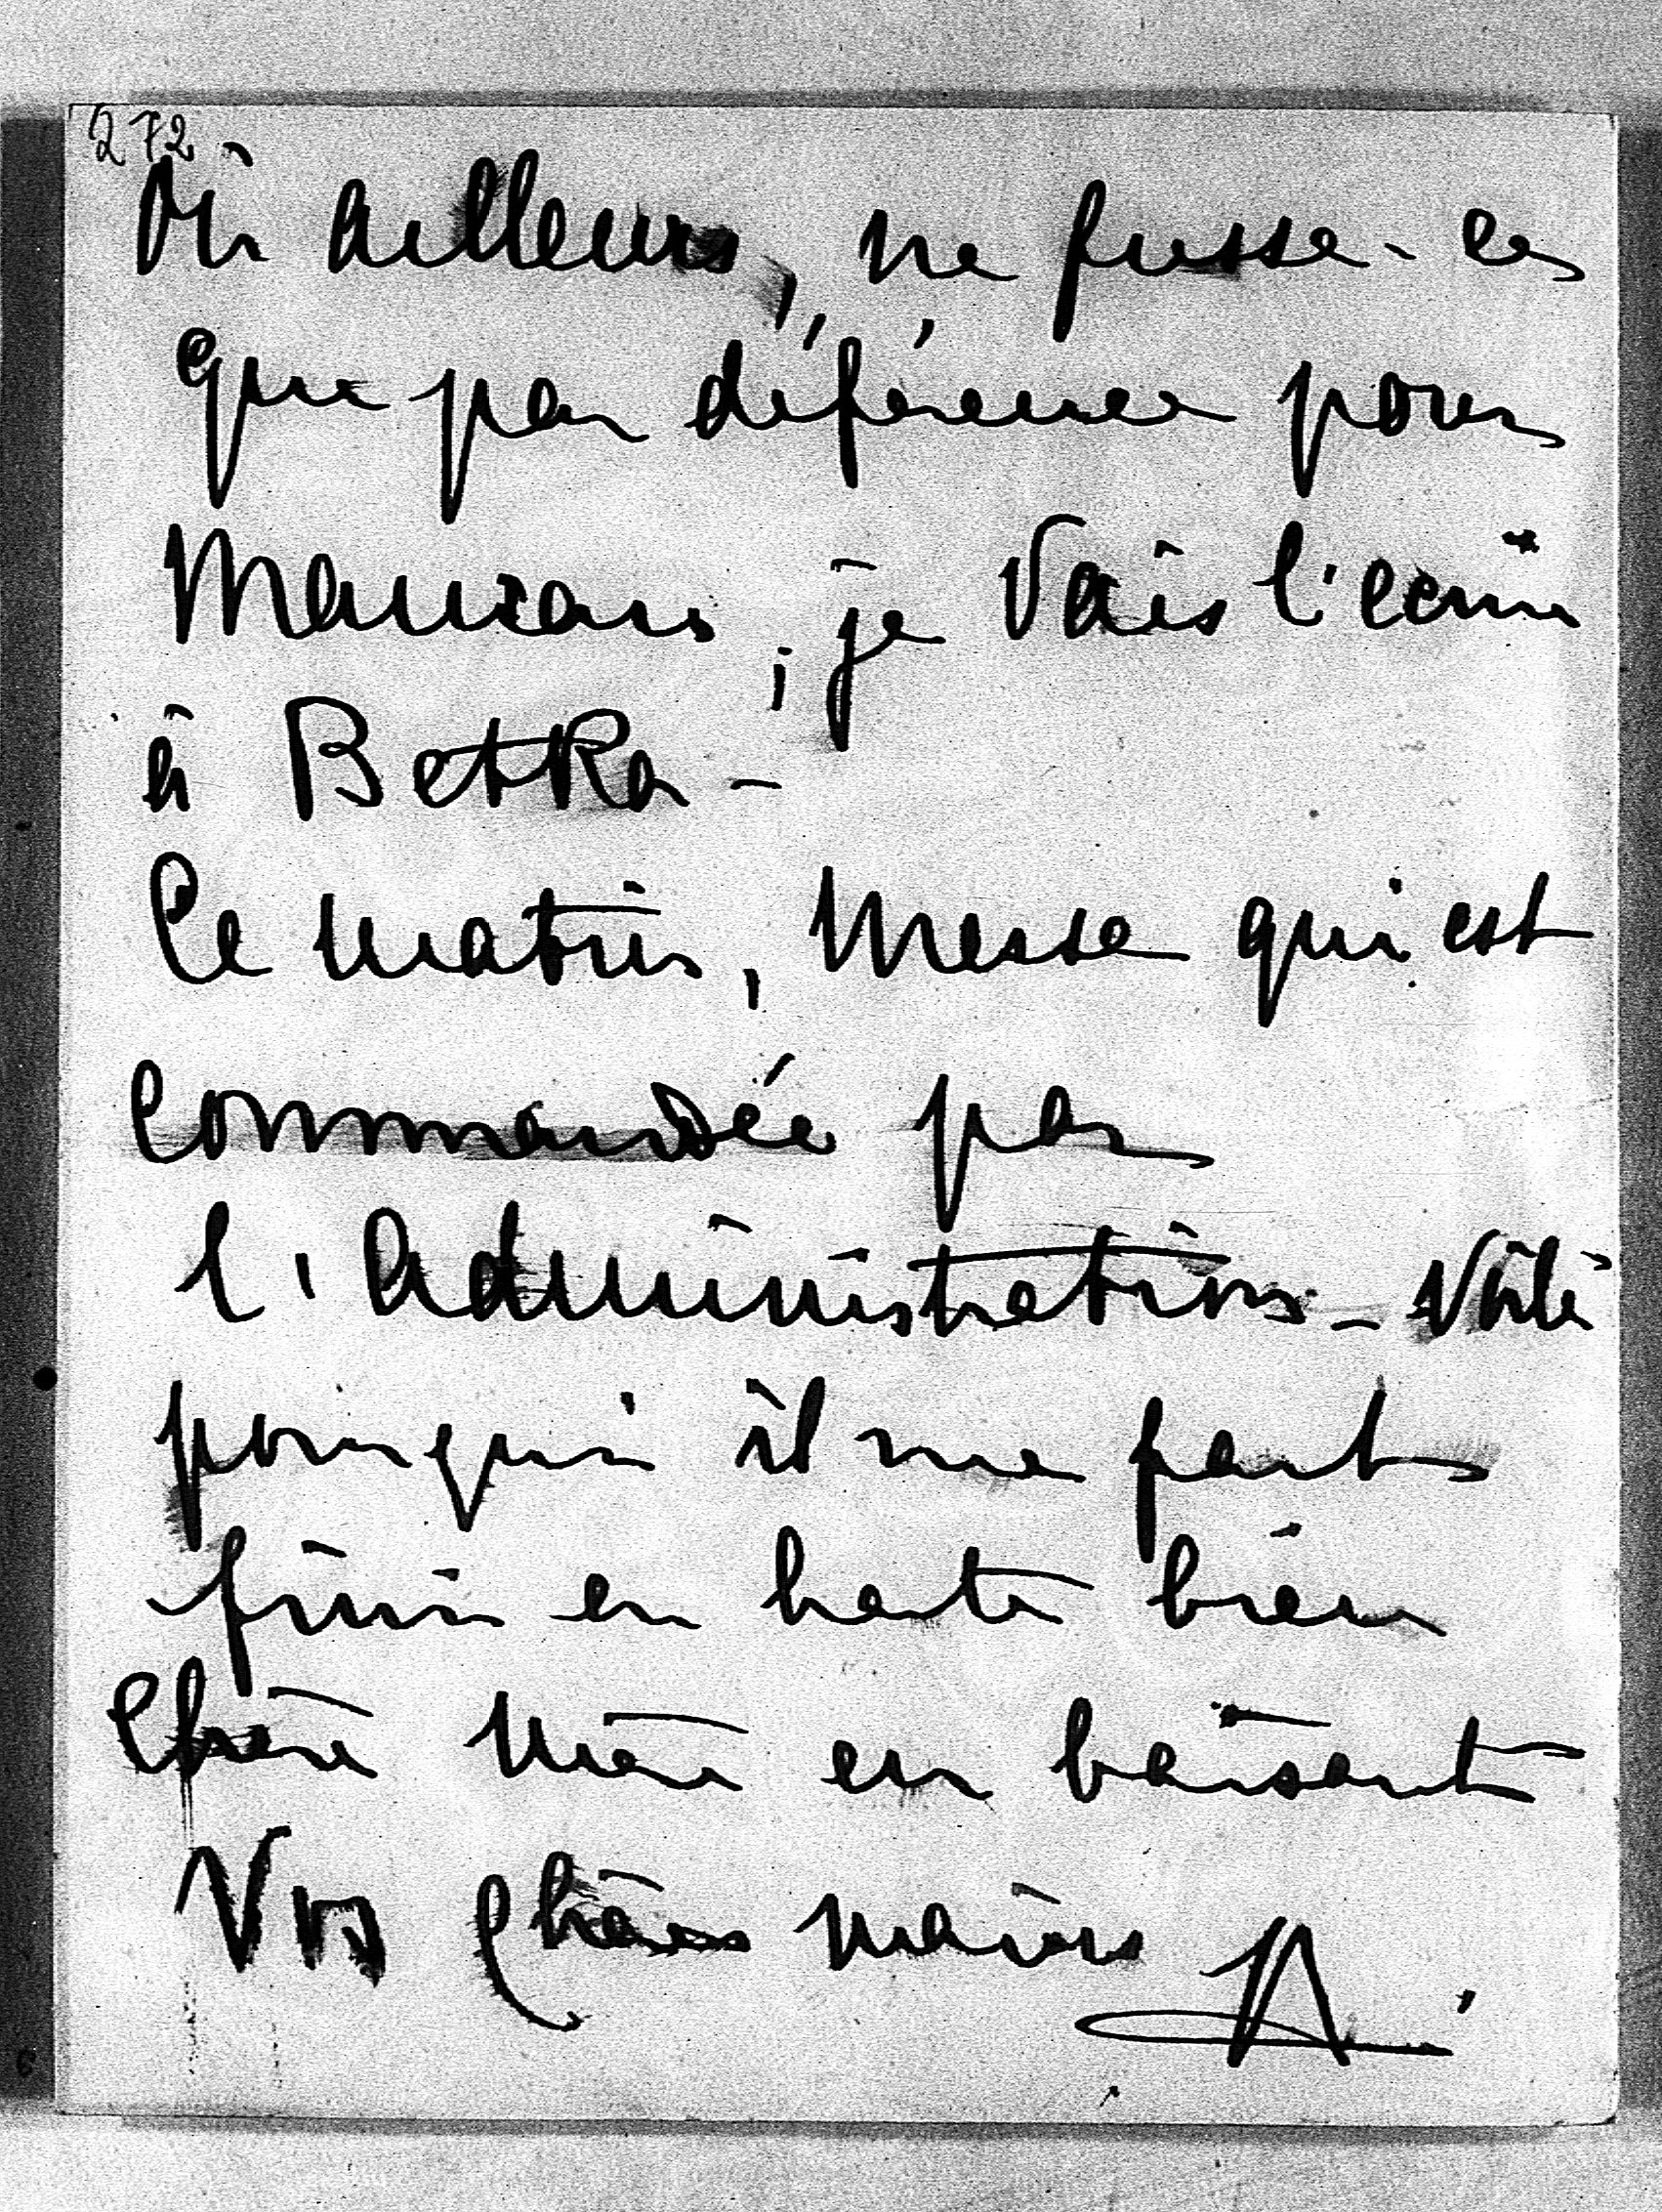 272
Où ailleurs, ne fusse-ce
que par déférence pour
je vais l'écrire
à Betka -
Ce matin, Messe qui est
commandée par
l'administration - Voilà
pourquoi il me faut
finir en hâte bien
Chère Mère en baisant
Vos Chères mains